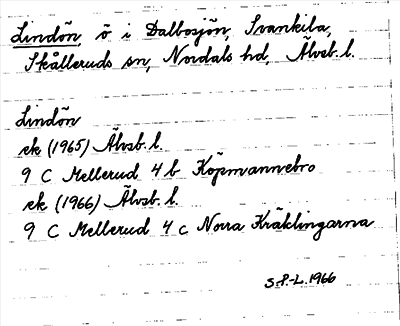 Lindön, ö i Dalbosjön, Svankila,
Skålleruds sn, Nordals hd, Älvsb. l.
Lindön
ek (1965) Älvsb. l.
9 C Mellerud 4 b Köpmannebro
ek (1966) Älvsb. l.
9 C Mellerud 4 c Norra Kräklingarna
S.P.-L. 1966